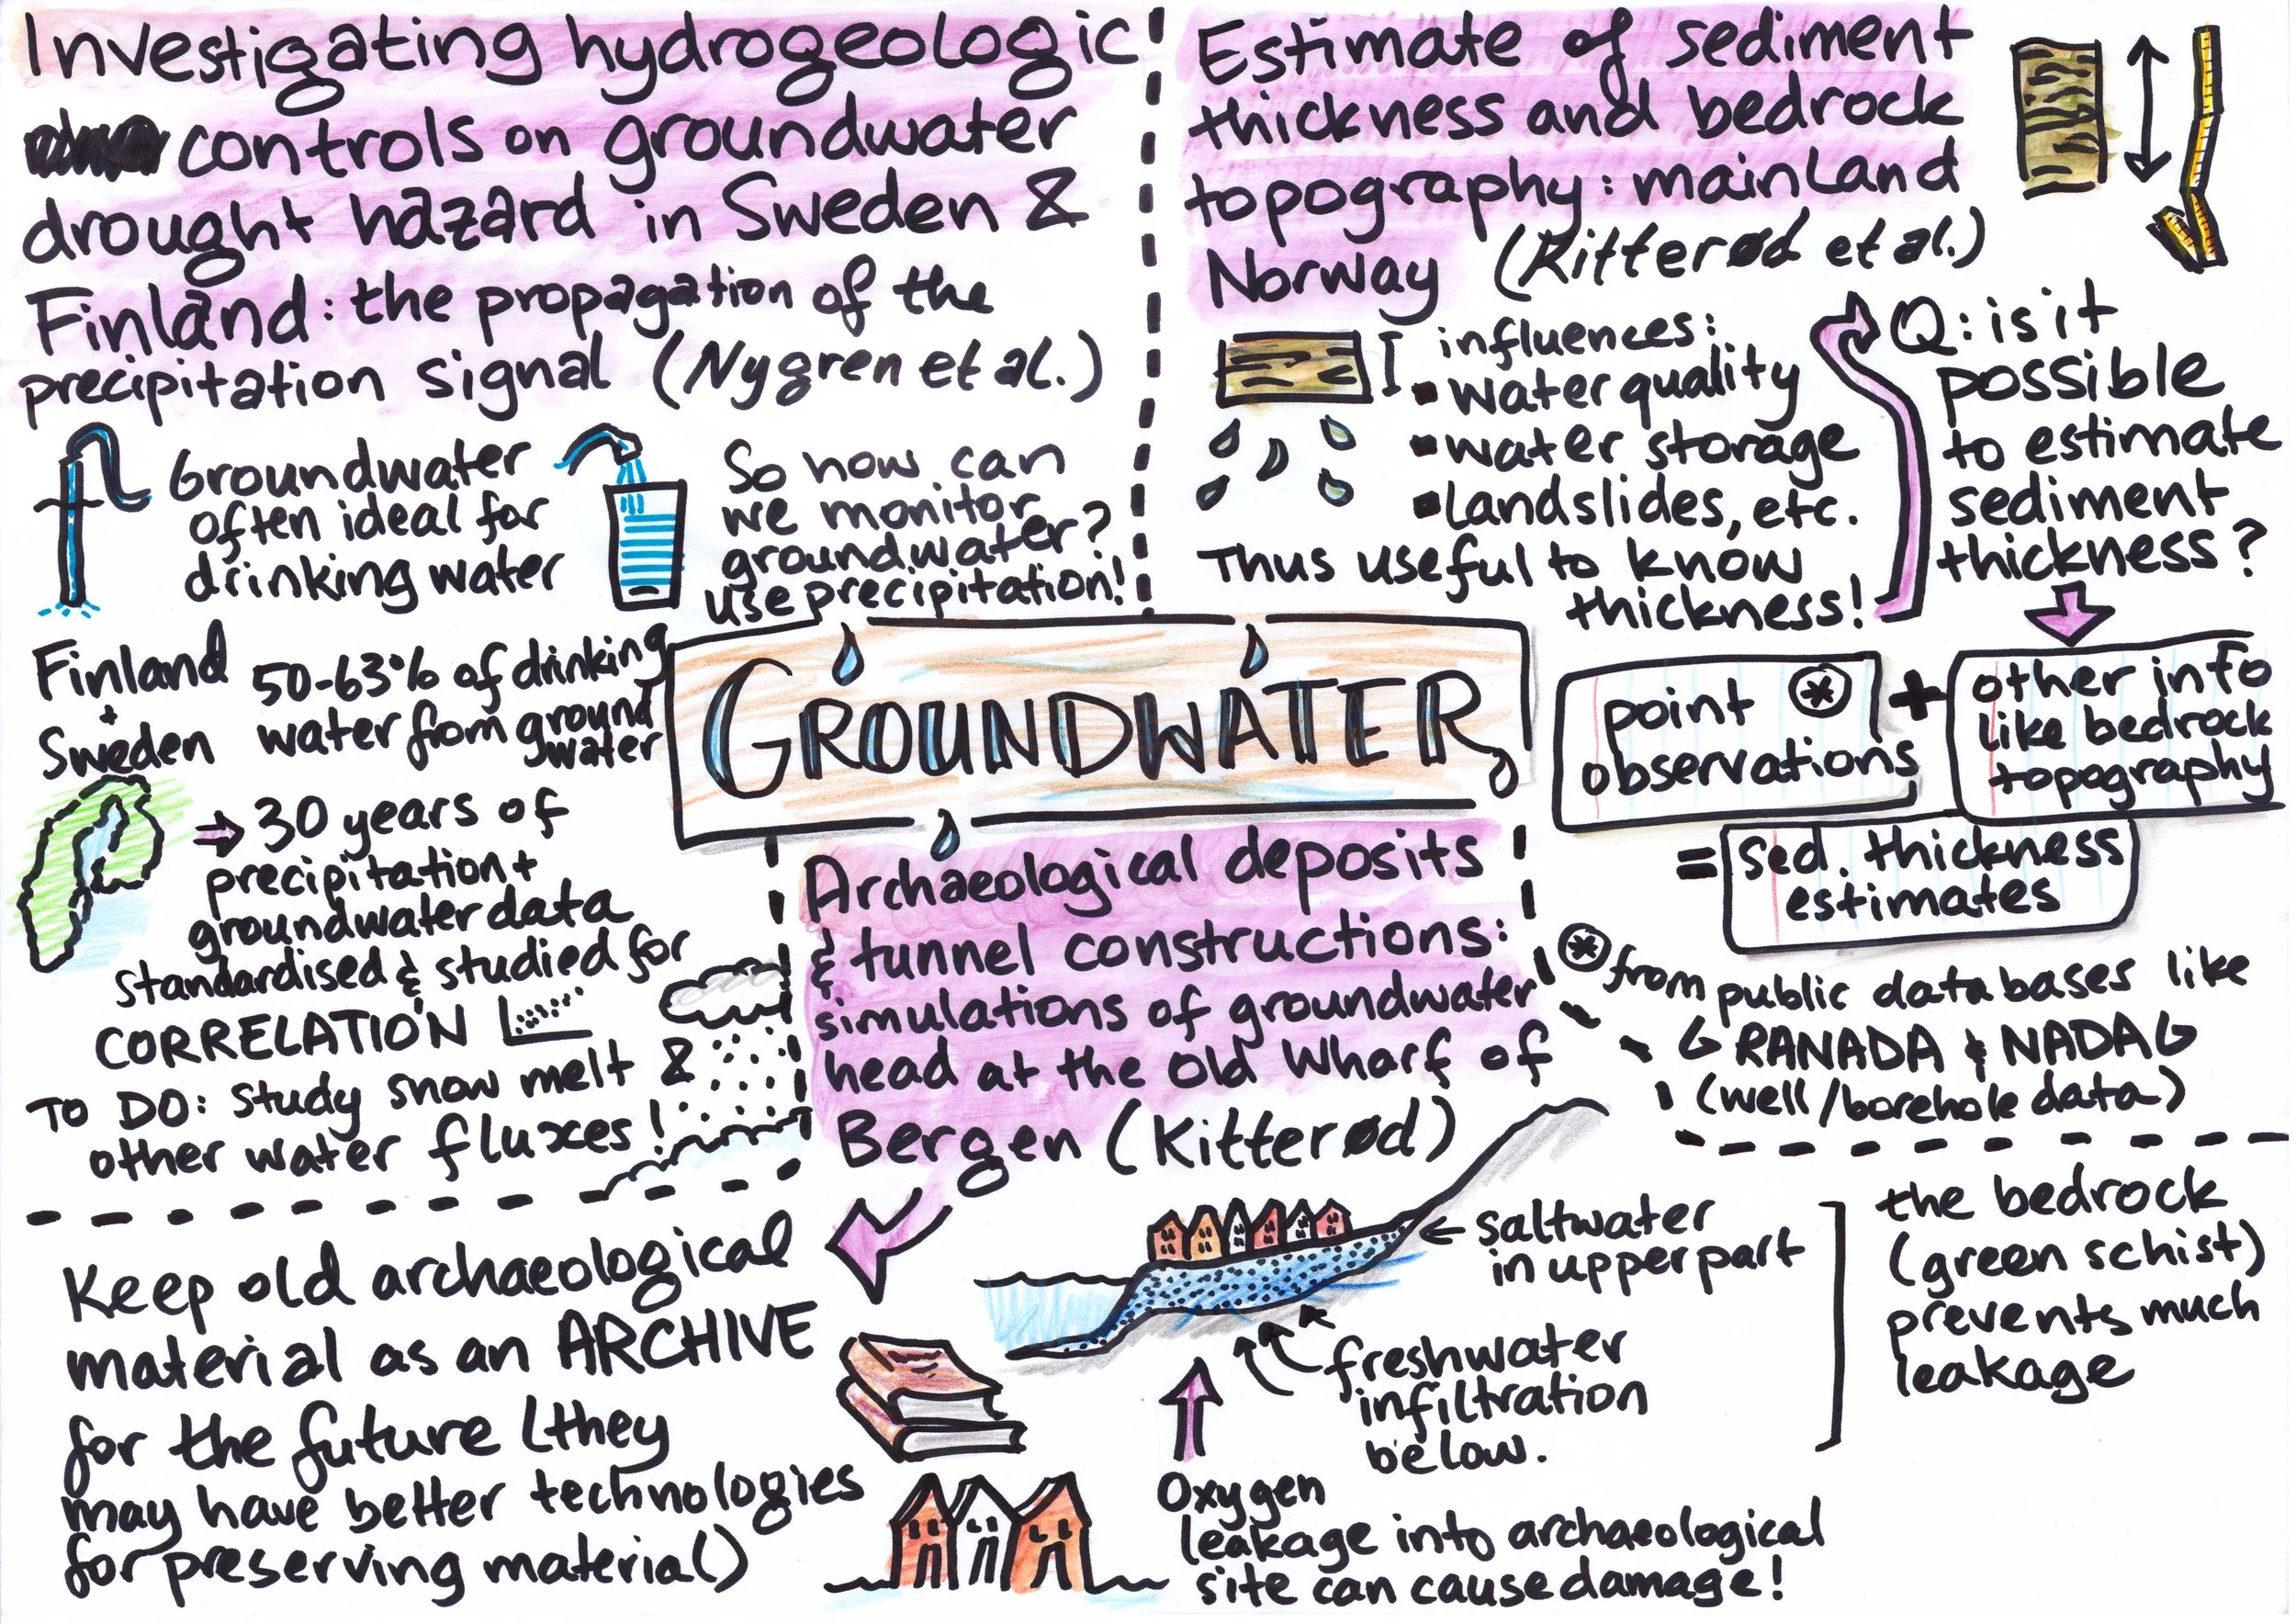 Investigating hydrogeologic
controls on groundwater
drought hazard in Sweden &
Finland: the propagation of the
precipitation signal (Nygren et al.)
Groundwater
often ideal for
drinking water
So how can
we monitor
groundwater?
use precipitation!
Finland
+
Sweden
50-63% of drinking
water from ground
water
30 years of
precipitation +
groundwater data
standardised & studied for
CORRELATION
TO DO: study snow melt &
other water fluxes!
Estimate of sediment
thickness and bedrock
topography: mainland
Norway (Kitterød et al.)
influences:
▪ water quality
▪ water storage
▪ landslides, etc.
Thus useful to know
thickness!
Q: is it
possible
to estimate
sediment
thickness?
point *
observations
+
other info
like bedrock
topography
= sed. thickness
estimates
* from public databases like
GRANADA & NADAG
(well/borehole data)
GROUNDWATER
Archaeological deposits
& tunnel constructions:
simulations of groundwater
head at the Old Wharf of
Bergen (Kitterød)
Keep old archaeological
material as an ARCHIVE
for the future (they
may have better technologies
for preserving material)
saltwater
in upper part
freshwater
infiltration
below.
the bedrock
(green schist)
prevents much
leakage
Oxygen
leakage into archaeological
site can cause damage!